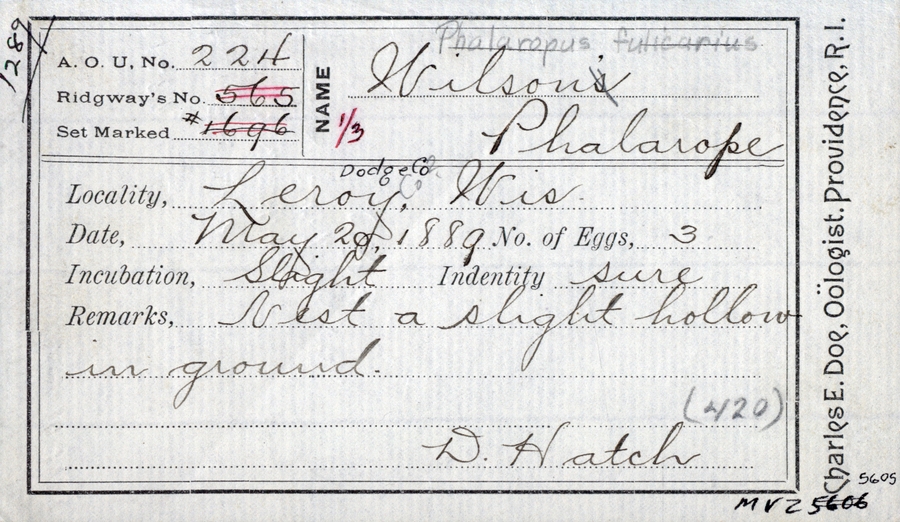 1289
Phalaropus fulicarius
A. O. U. No. 224
Ridgway's No. 565
Set Marked #1696
NAME
1/3
Wilson's
Phalarope
Dodge Co.
Locality, Leroy, Wis.
Date, May 29, 1889 No. of Eggs, 3
Incubation, Slight Indentity sure
Remarks, Nest a slight hollow
in ground.
(420)
D. Hatch
Charles E. Doe, Oölogist, Providence, R. I.
5605
MVZ 5606